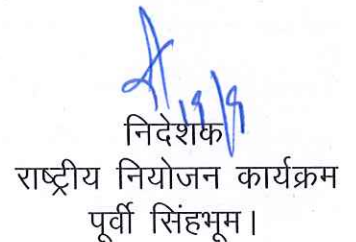 निदेशक
राष्ट्रीय नियोजन कार्यक्रम
पूर्वी सिंहभूम।